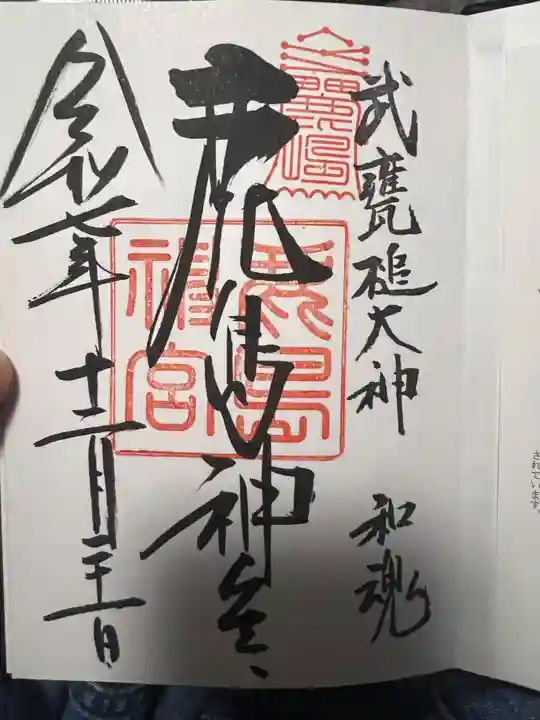 武甕槌大神 和魂
鹿島神宮
鹿島神宮
令和七年十二月二十一日
されています。